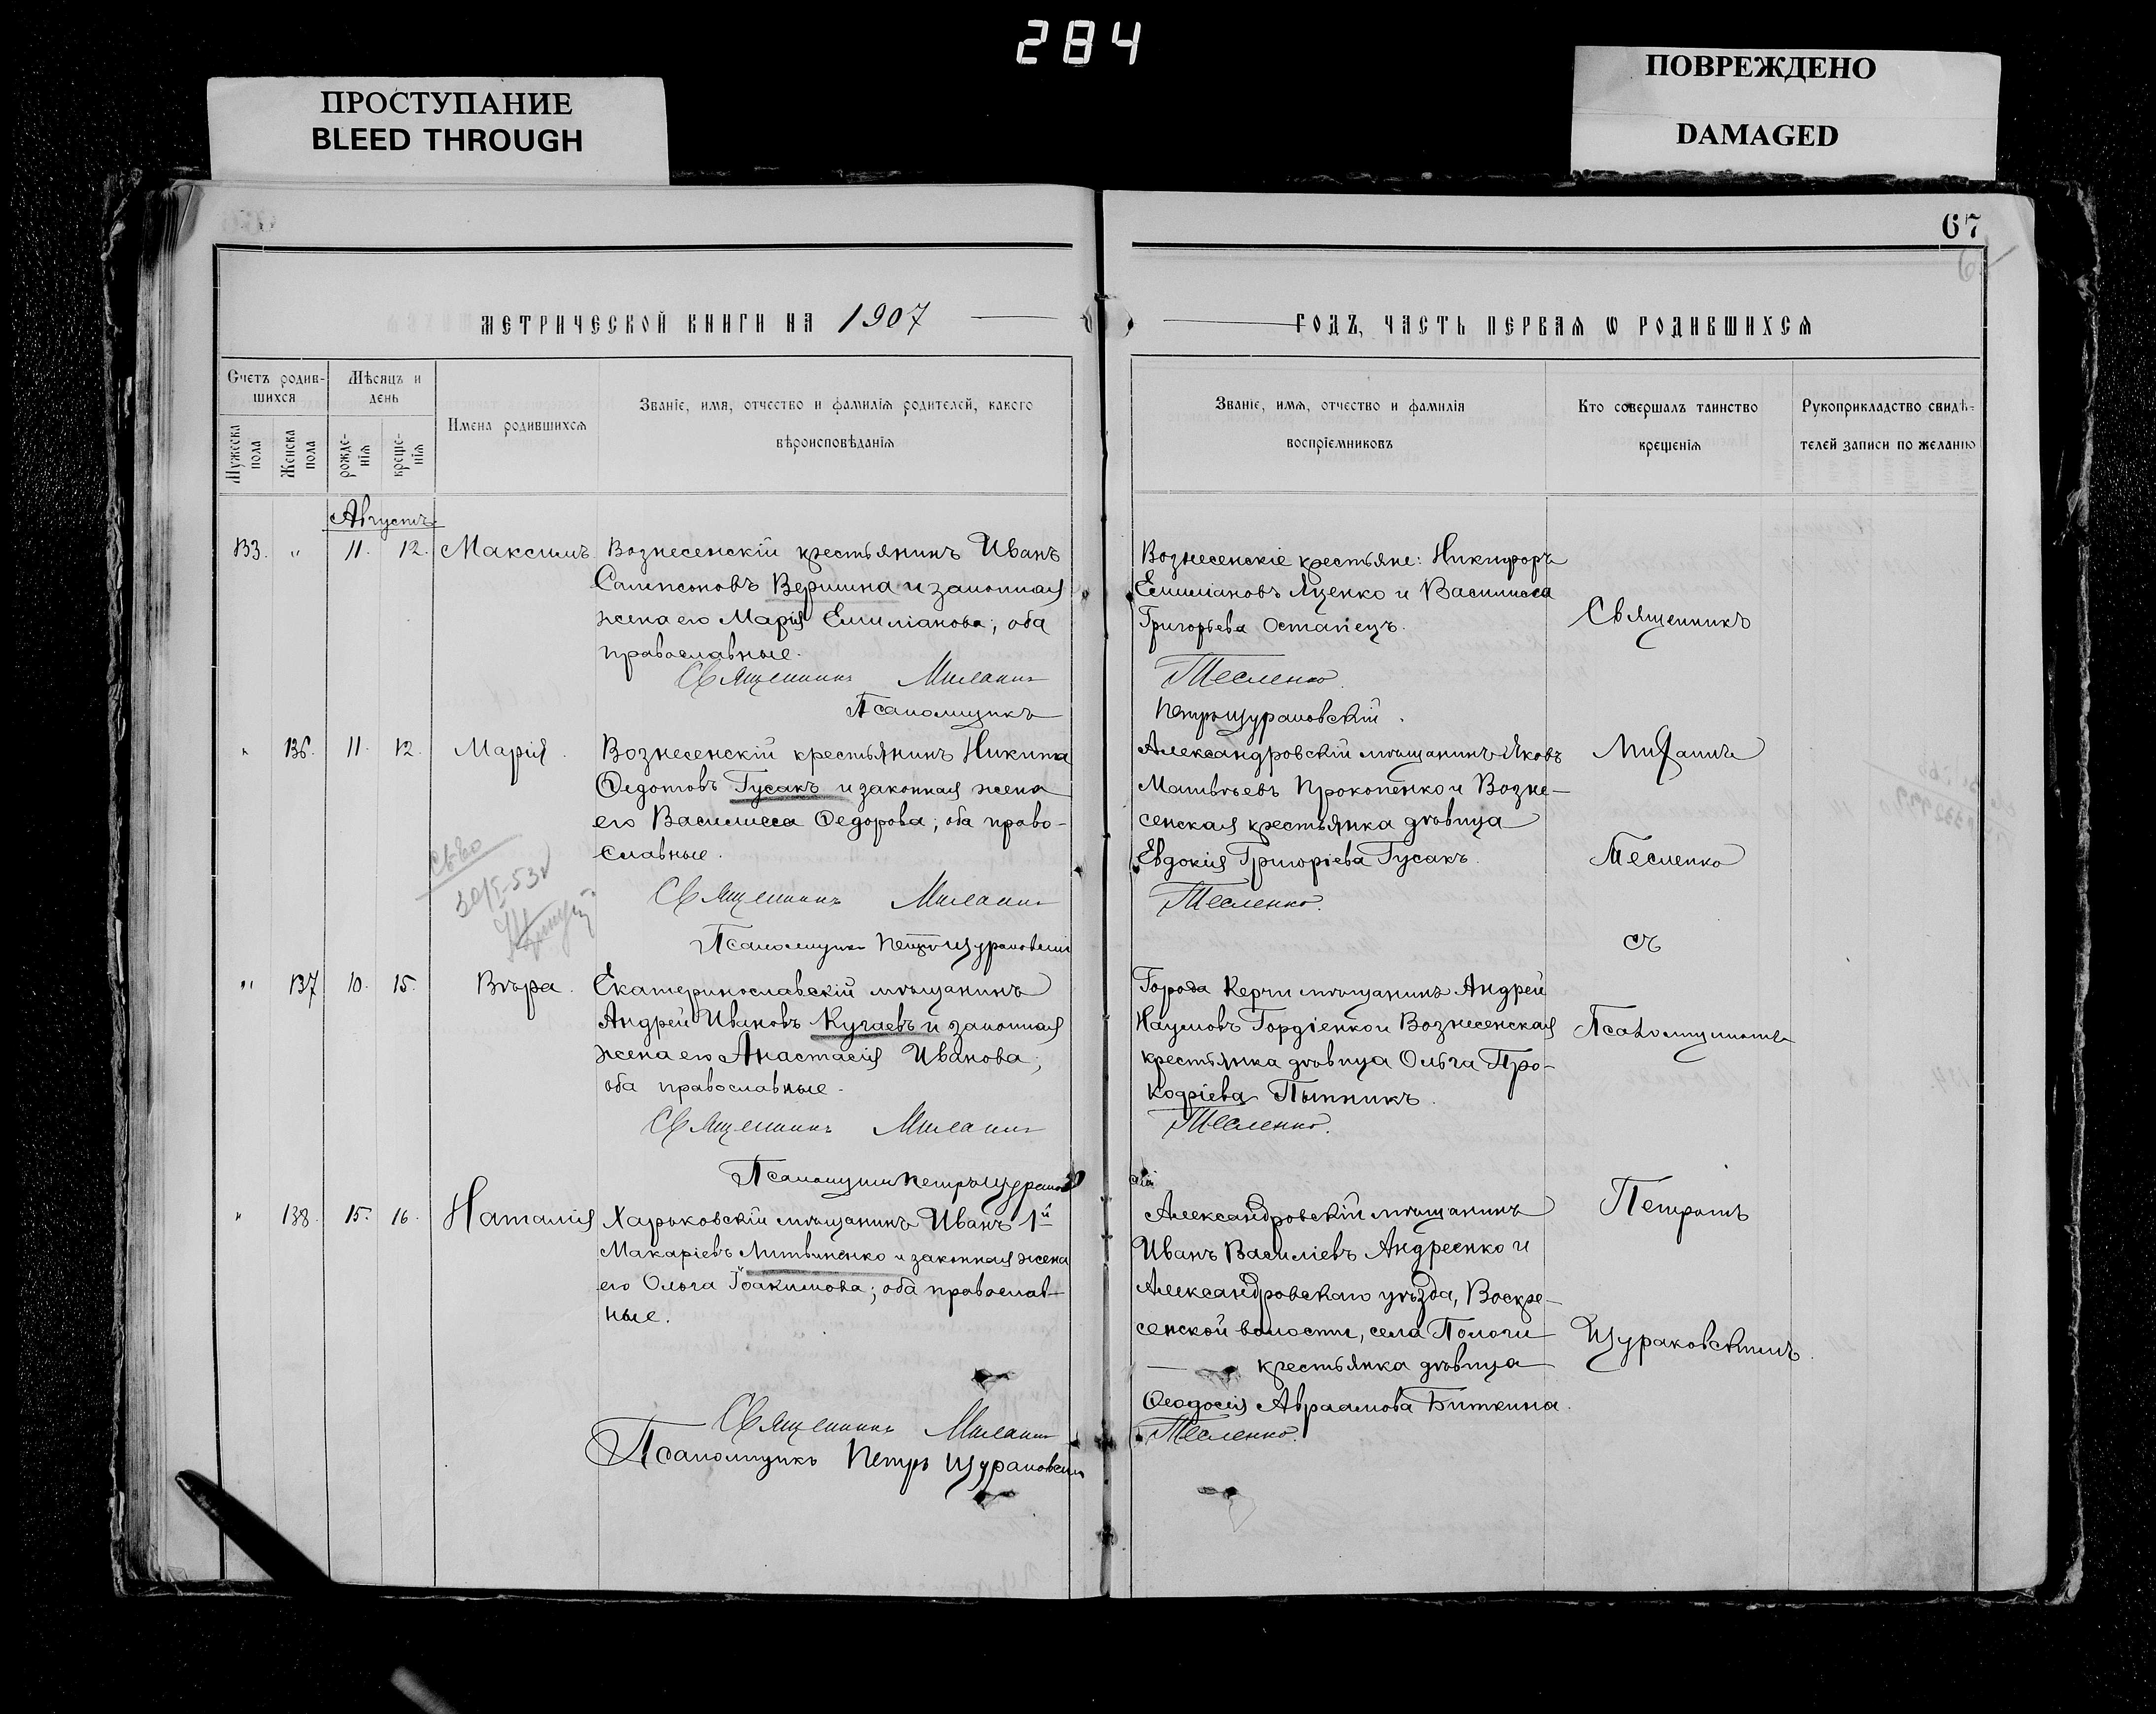 284
ПРОСТУПАНИЕ
BLEED THROUGH
ПОВРЕЖДЕНО
DAMAGED
67
МЕТРИЧЕСКОЙ КНИГИ НА 1907
ГОДЪ, ЧАСТЬ ПЕРВАЯ Ѡ РОДИВШИХСЯ
Счетъ родив-
шихся
Мѣсяцъ и
день
Имена родившихся
Званіе, имя, отчество и фамилія родителей, какого
вѣроисповѣданія
Мужеска
пола
Женска
пола
рожде-
нія
креще-
нія
Званіе, имя, отчество и фамилія
воспріемниковъ
Кто совершалъ таинство
крещенія
Рукоприкладство свидѣ-
телей записи по желанію
Августъ
133. " 11. 12. Максимъ Вознесенскій крестьянинъ Иванъ
Сампсоновъ Вершина и законная
жена его Марія Емиліанова; оба
православные.
Священникъ
Псаломщикъ
Вознесенскіе крестьяне: Никифоръ
Емиліановъ Яценко и Василисса
Григорьева Остапецъ.
Тесленко.
Петръ Щураковскій.
" 136. 11. 12. Марія. Вознесенскій крестьянинъ Никита
Ѳедотовъ Гусакъ и законная жена
его Василисса Ѳедорова; оба право-
славные.
Священникъ
Псаломщикъ Петръ Щураковскій
Александровскій мѣщанинъ Яковъ
Матвѣевъ Прокопенко и Возне-
сенская крестьянка дѣвица
Евдокія Григоріева Гусакъ.
Тесленко.
" 137 10. 15. Вѣра. Екатеринославскій мѣщанинъ
Андрей Ивановъ Кучаевъ и законная
жена его Анастасія Иванова;
оба православные.
Священникъ
Псаломщикъ Петръ Щураков
Города Керчи мѣщанинъ Андрей
Наумовъ Гордіенко и Вознесенская
крестьянка дѣвица Ольга Про-
Тесленко.
скій
" 138. 15. 16. Наталія Харьковскій мѣщанинъ Иванъ 1й
Макаріевъ Литвиненко и законная жена
его Ольга Іоакимова; оба православ-
ные.
Священникъ
Псаломщикъ Петръ Щураковскій
Александровскій мѣщанинъ
Иванъ Василіевъ Андреенко и
Александровскаго уѣзда, Воскре-
сенской волости, села Пологи
крестьянка дѣвица
Ѳеодосія Авраамова Биткина.
Тесленко.
Священникъ
Тесленко
съ
Псаломщикомъ
Петромъ
Щураковскимъ.